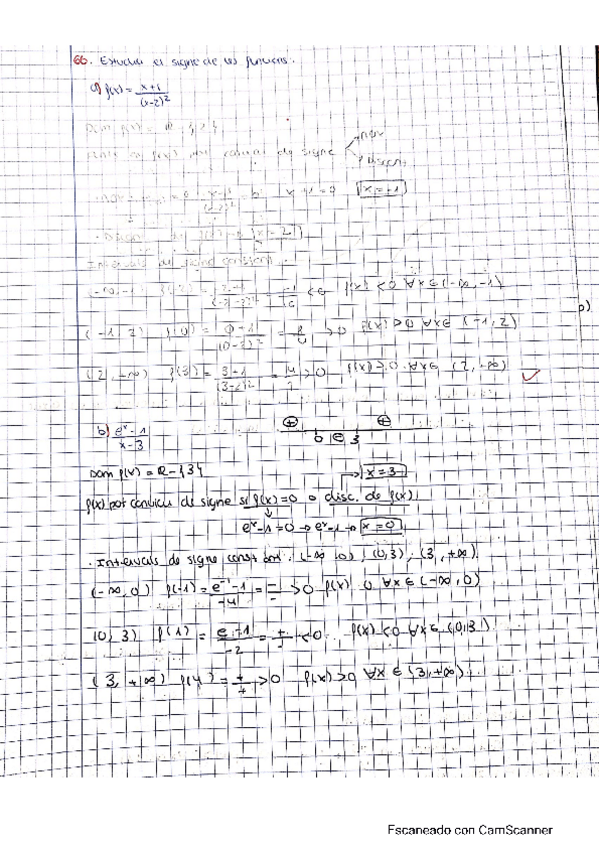 66. Estudia el signe de les funcions.
a) f(x) = x+1 / (x-2)²
Dom f(x) = R - {2}
f(x) pot canviar de signe
x = -1
Intervals de signe constant
f(x) < 0 ∀x ∈ (-∞, -1)
(-1, 2) f(0) = 0-1 / (0-2)² = > 0 f(x) > 0 ∀x ∈ (-1, 2)
(2, +∞) f(3) = 3-1 / (3-2)² = 4 / 1 > 0 f(x) > 0 ∀x ∈ (2, +∞)
b)
b) eˣ-1 / x-3
⊕ 0 ⊖ 3 ⊕
Dom f(x) = R - {3} x = 3
f(x) pot canviar de signe si f(x) = 0 o disc. de f(x).
eˣ-1 = 0 → eˣ-1 → x = 0
· Intervals de signe constant: (-∞, 0), (0, 3), (3, +∞).
(-∞, 0) f(-1) = e⁻¹-1 / -4 = - / - > 0 f(x) 0 ∀x ∈ (-∞, 0)
(0, 3) f(1) = e-1 / -2 = + / - < 0 f(x) < 0 ∀x ∈ (0, 3)
(3, +∞) f(4) = + / + > 0 f(x) > 0 ∀x ∈ (3, +∞).
Escaneado con CamScanner